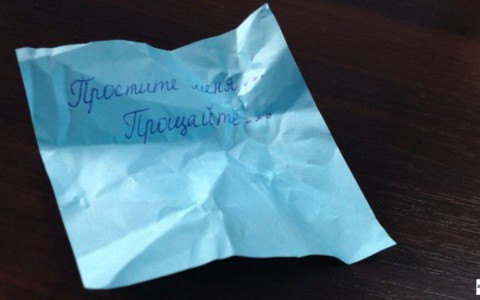 Простите меня...
Прощайте...